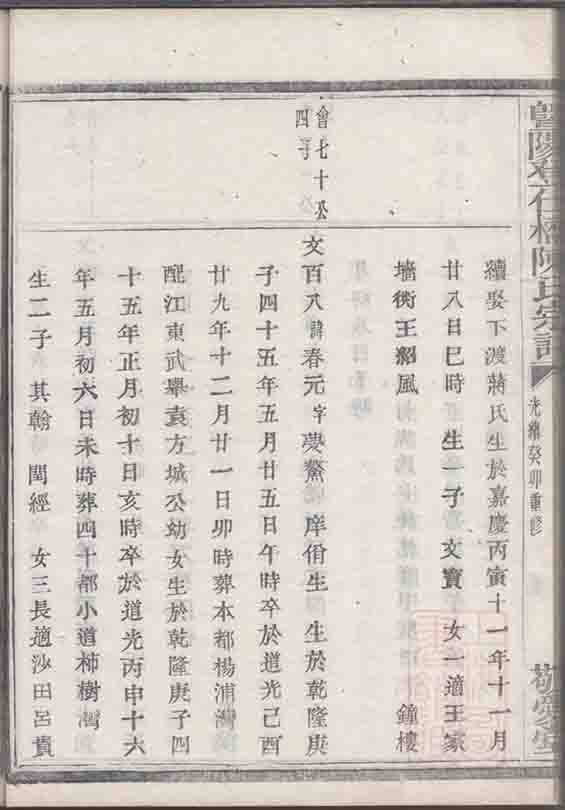 暨陽孝仁橋陳氏宗譜
光緒癸卯重修
敬愛堂
續娶下渡蔣氏生於嘉慶丙寅十一年十一月
廿八日巳時 生一子文寶 女一適王家
墻衖王紹風 鐘樓
會七十公
四子
文百八諱春元字夢鰲 庠佾生 生於乾隆庚
子四十五年五月廿五日午時卒於道光己酉
廿九年十二月廿一日卯時葬本都楊浦灣
配江東武舉袁方城公幼女生於乾隆庚子四
十五年正月初十日亥時卒於道光丙申十六
年五月初六日未時葬四十都小道柿樹灣
生二子 其翰 聞經 女三長適沙田呂貴